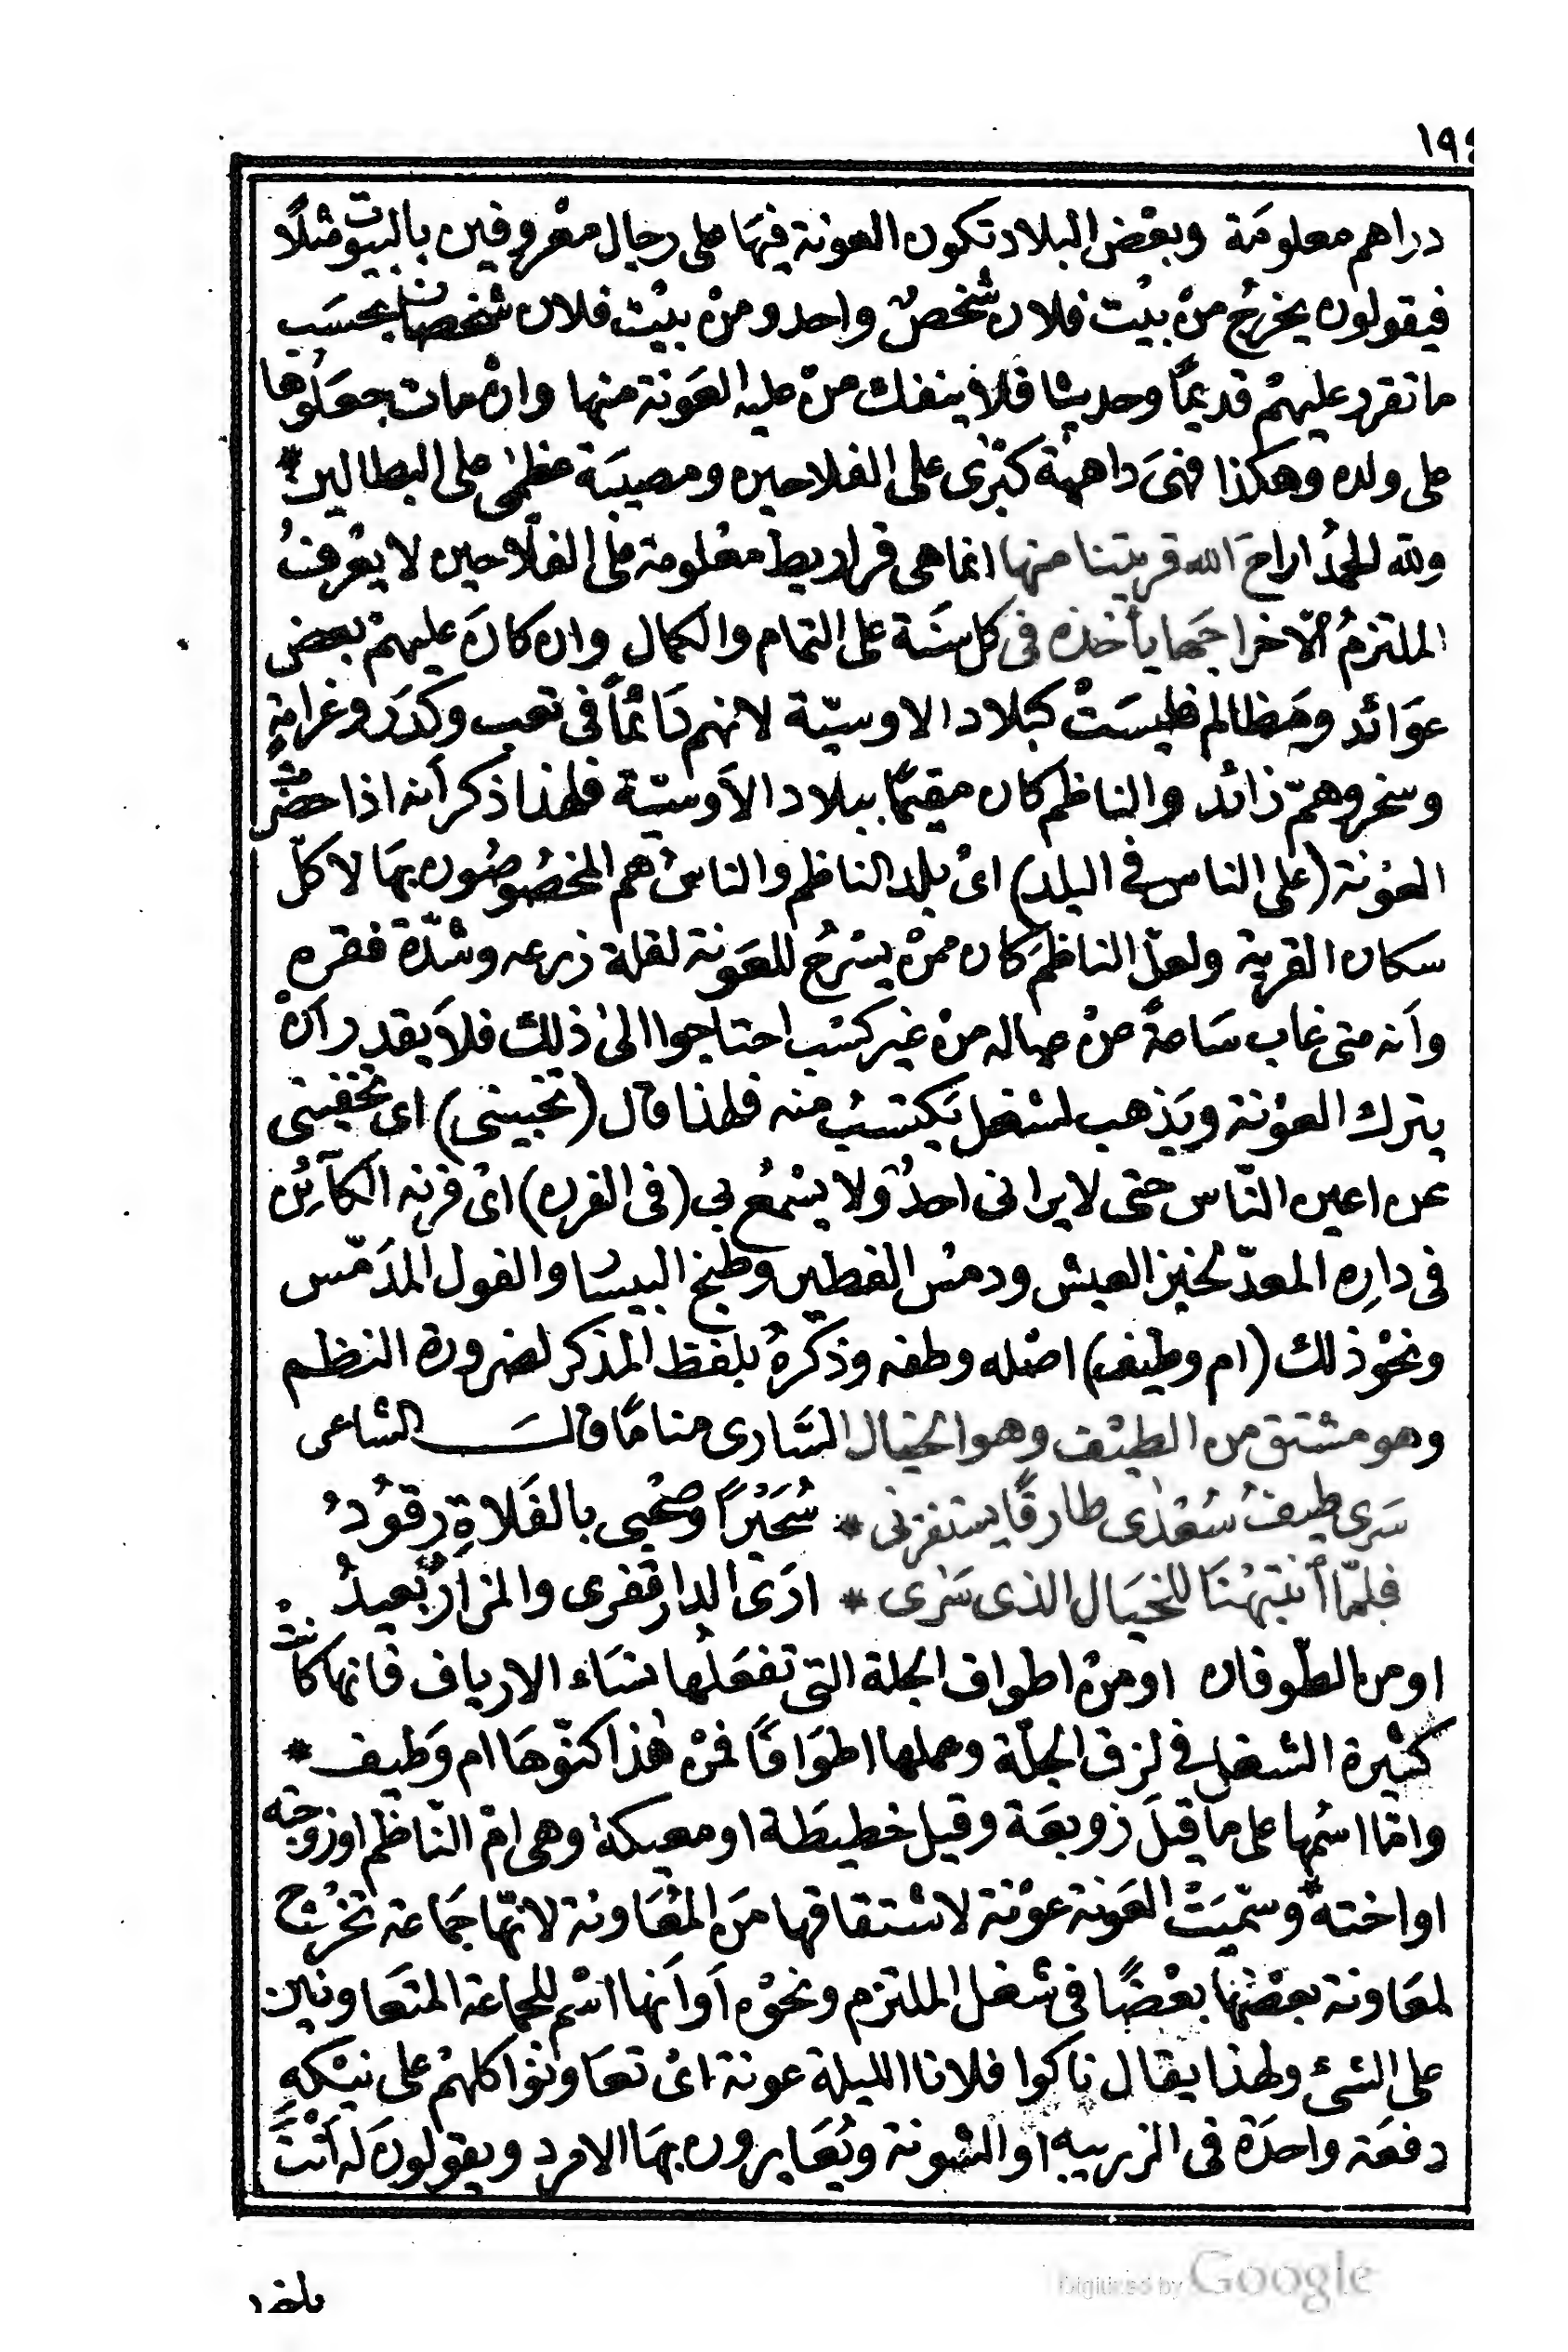 ١٩٤
دراهم معلومَة وبعْض البلاد تكون العونة فيهَا على رجال معْروفين بالبيوت مثلًا
فيقولون يخرجُ منْ بيْت فلان شخصٌ واحد ومنْ بيْت فلان شخصَان بحسَب
ما تقرر عليهمْ قديمًا وحديثا فلا ينفك منْ عليه العَونة منها وانْ مات جعَلُوها
على ولده وهكذا فهىَ داهية كبْرى على الفلاحين ومصيبَة عظمى على البطالين *
ولله الحمدُ اراحَ الله قريتنا منها انما هى قراريط معْلومة على الفلّاحين لا يعْرفُ
الملتزمُ الّا خراجَها يأخذه فى كل سنَة على التمام والكمال وان كانَ عليهمْ بعض
عوَائد ومَظالم فليسَتْ كبلاد الاوسيّة لانهم دَائمًا فى تعب وكدَر وغرامةٍ
وسخر وهمّ زائد والناظم كان مقيمًا ببلاد الأوسيّة فلهذا ذكر أنه اذا حضَرتْ
العوْنة (على الناس فى البلد) اىْ بلد الناظم والناسُ هم المخصُوصُون بهَا لا كلّ
سكان القرية ولعلّ الناظمَ كان ممنْ يسْرحُ للعَونة لقلة زرعه وشدّة فقره
وأنه متى غاب سَاعةً عنْ عياله منْ غير كسْب احتاجوا الىٰ ذلك فلاَ يقدر أنْ
يترك العوْنة ويَذهب لشغل يَكتسبُ منه فلهذا قال (تخبينى) اى تخْفينى
عن اعين النّاس حتى لا يرانى احدٌ ولا يسْمعُ بى (فى الفرن) اىْ فرنه الكآئِن
فى دارِه المعدّ لخبْز العيش ودمْس الفطير وطبْخ البيسَار والفول المدَمّس
ونحْو ذلك (ام وطيف) اصْله وطفه وذكّرهُ بلفظ المذكر لضرورة النظم
وهو مشتق من الطيْف وهو الخيال السَّارى منامًا قالــَـ الشاعر
سَرى طيفُ سُعْدٰى طارقًا يستفزنى * سُحَيْرًا وصحْبى بالفَلاةِ رقوُدُ
فلمّا أنتبهْنَا للخيَال الذى سَرٰى * ارَى الدارَ قفرى والمزارُ بَعيدُ
او من الطّوفان او منْ اطواف الجلة التى تفعَلُها نسَاء الارياف فانها كانتْ
كثيرة الشغل فى لزق الجلّة وعملها اطوَافًا فمنْ هٰذا كنّوهَا ام وَطيف *
وامّا اسْمها على ما قيلَ زوبعَة وقيل خطيطَة او معيكة وهى امّ النّاظم او زوجته
او اخته وسمّيَتْ العَونة عوْنة لاشْتقاقها منَ المُعَاونة لانّها جمَاعة تخْرُج
لمعَاونة بعضهَا بعْضًا فى شغل الملتزم ونحْوه أو أنها اسْم للجماعة المتعَاونين
على الشىء ولهذا يقال ناكوا فلانا الليلة عونة اىْ تعَاونوْا كلهمْ على نيْكهِ
دفعَة واحدَة فى الزريبه او الشونة ويُعَايرون بهَا الامْرد ويقولونَ له أنْتَ